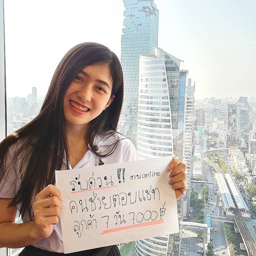 รับด่วน !! งานonline
คนช่วยตอบแชท
ลูกค้า 7 วัน 7000฿